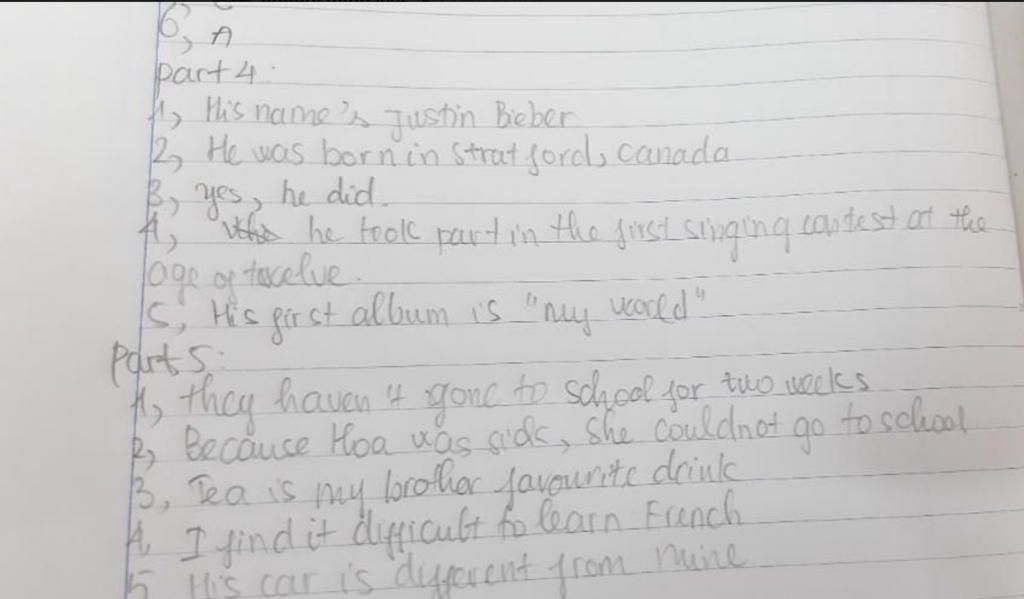 6, A
part 4:
1, His name's Justin Bieber
2, He was born in Stratford, Canada
3, yes, he did.
4, he took part in the first singing contest at the
age of twelve.
5, His first album is "my world"
Part 5:
1, they haven't gone to school for two weeks
2, Because Hoa was sick, She couldnot go to school
3, Tea is my brother favourite drink
4, I find it difficult to learn French
5 His car is different from mine